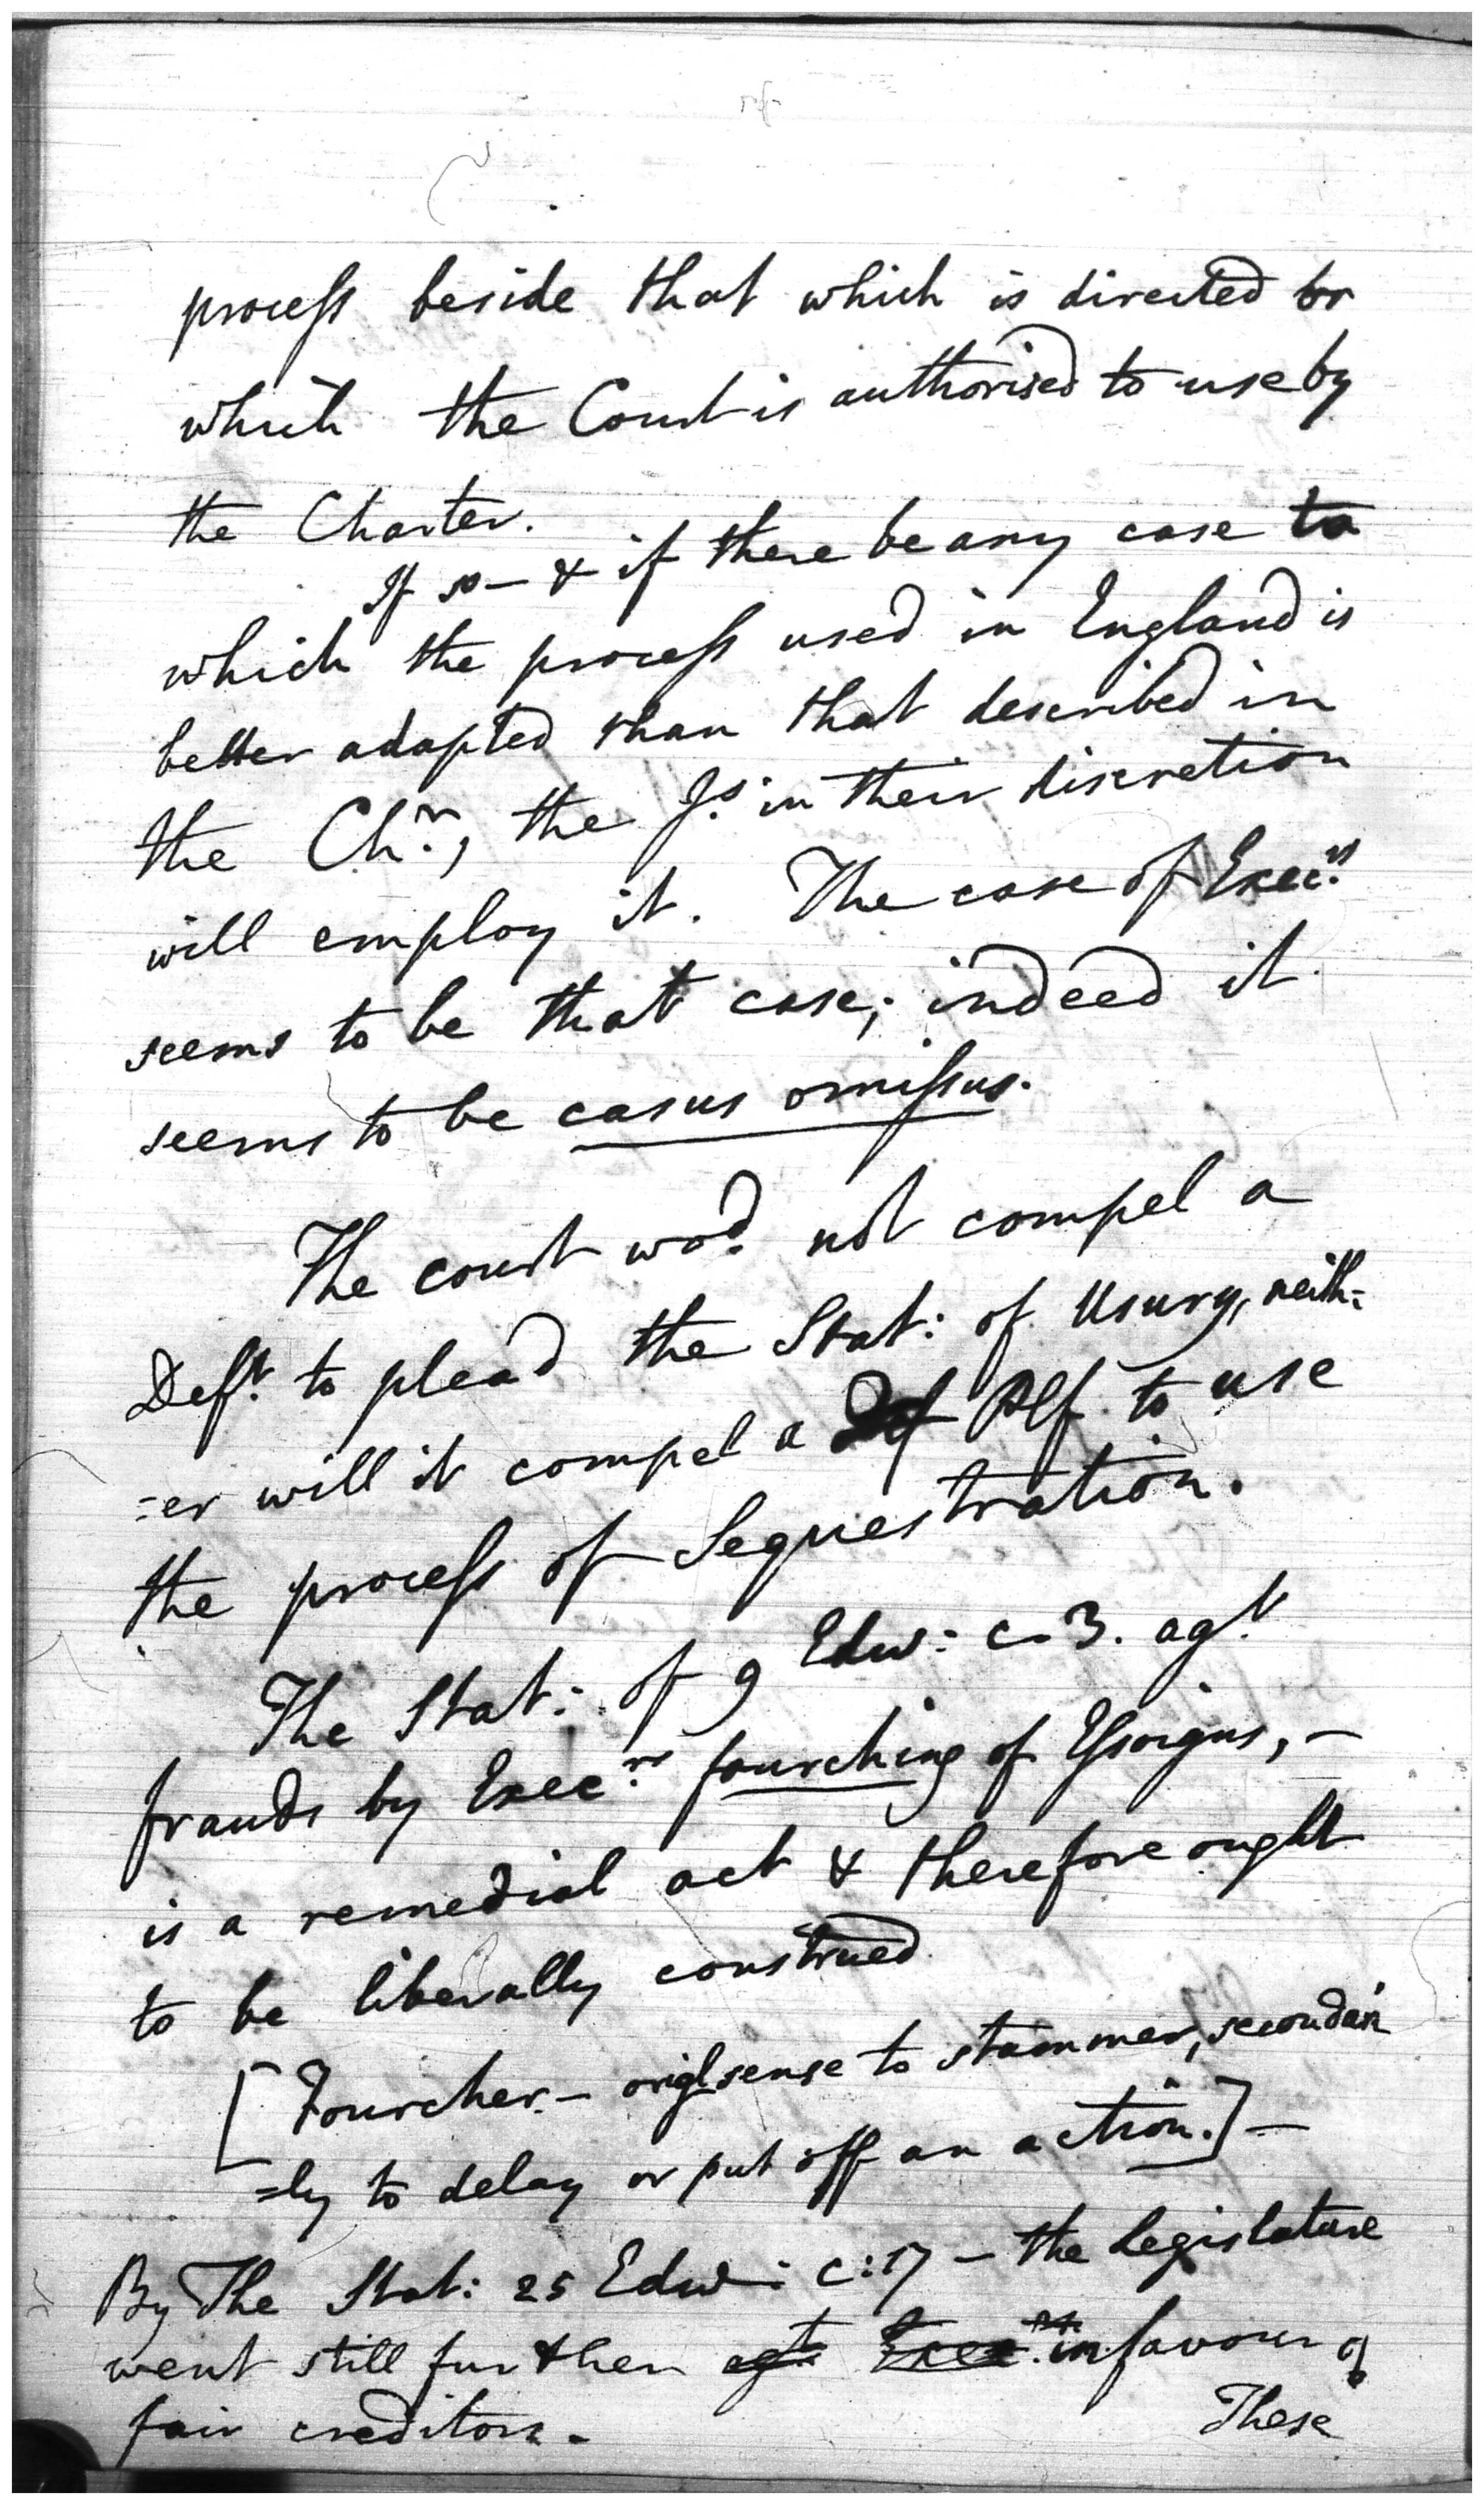 process beside that which is directed or
which the Court is authorised to use by
the Charter.
If so – & if there be any case to
which the process used in England is
better adapted than that described in
the Chr., the Js. in their discretion
will employ it. The case of Execrs.
seems to be that case; indeed it
seems to be casus omissus.
The court wod. not compel a
Deft. to plead the Stat: of Usury, neith-
-er will it compel a Plf. to use
the process of Sequestration.
The Stat: of 9 Edw: c. 3. agt.
frauds by Execrs. fourching of Essoigns, –
is a remedial act & therefore ought
to be liberally construed
[Fourcher. – origl sense to stammer, secondari
=ly to delay or put off an action.] –
By The Stat: 25 Edw: c: 17 – the Legislature
went still further agt. Execrs. in favour of
fair creditors. –
These